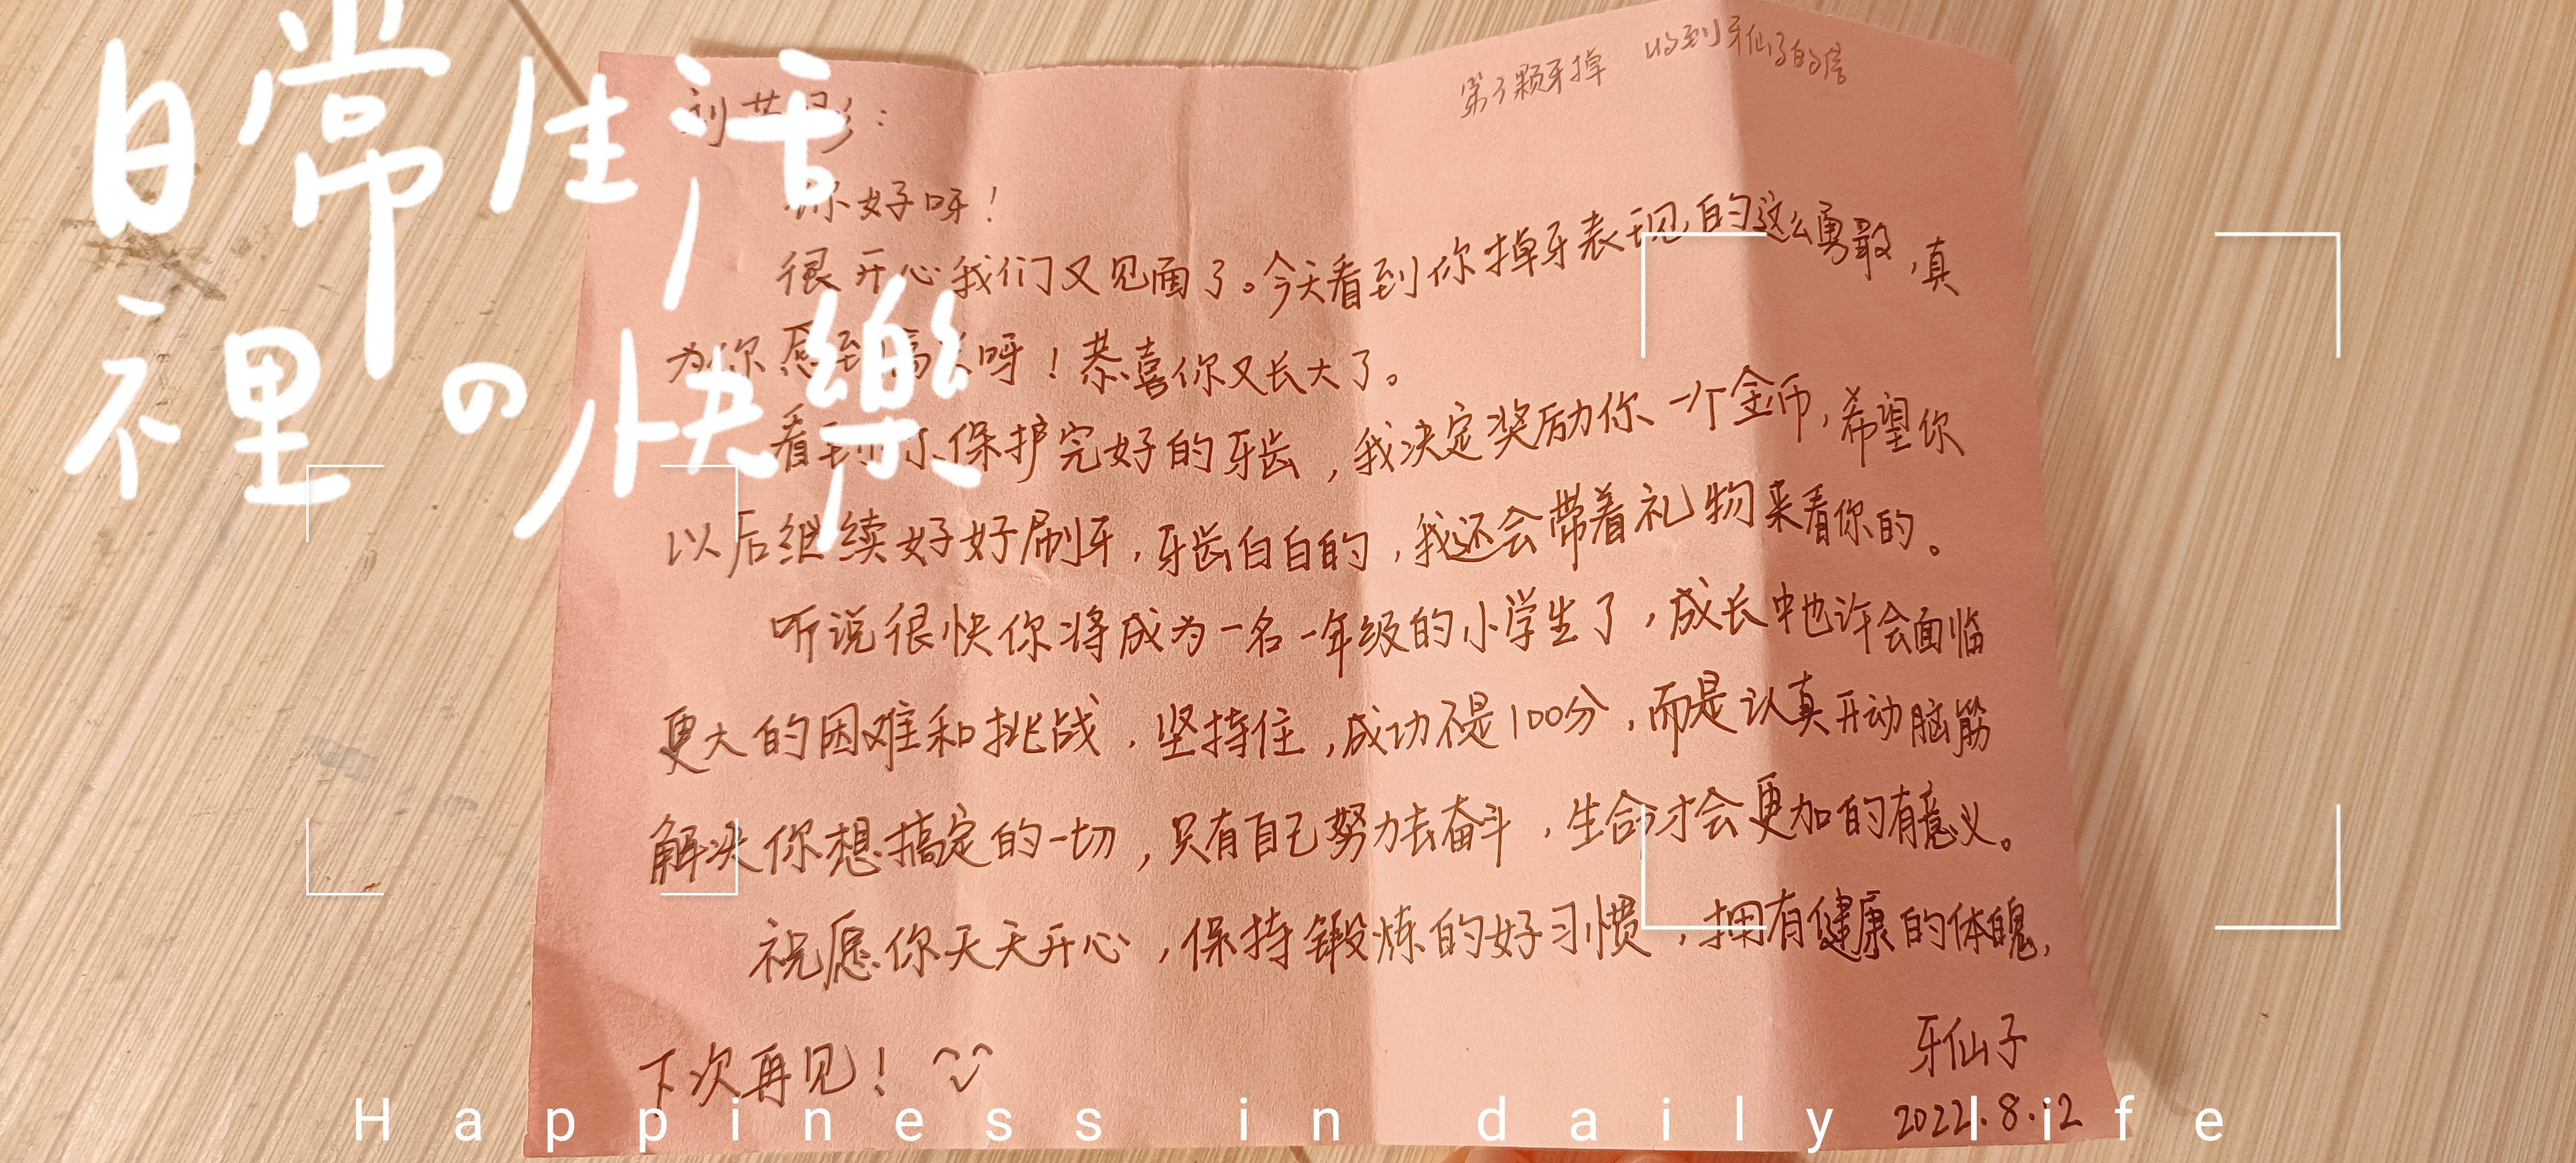 日常生活
裡の快樂
第3颗牙掉 收到牙仙子的信
刘
你好呀！
很开心我们又见面了。今天看到你掉牙表现的这么勇敢，真
为你感到高兴呀！恭喜你又长大了。
看到你保护完好的牙齿，我决定奖励你一个金币，希望你
以后继续好好刷牙，牙齿白白的，我还会带着礼物来看你的。
听说很快你将成为一名一年级的小学生了，成长中也许会面临
更大的困难和挑战，坚持住，成功不是100分，而是认真开动脑筋
解决你想搞定的一切，只有自己努力去奋斗，生命才会更加的有意义。
祝愿你天天开心，保持锻炼的好习惯，拥有健康的体魄，
下次再见！
牙仙子
2022.8.12
Happiness in daily life